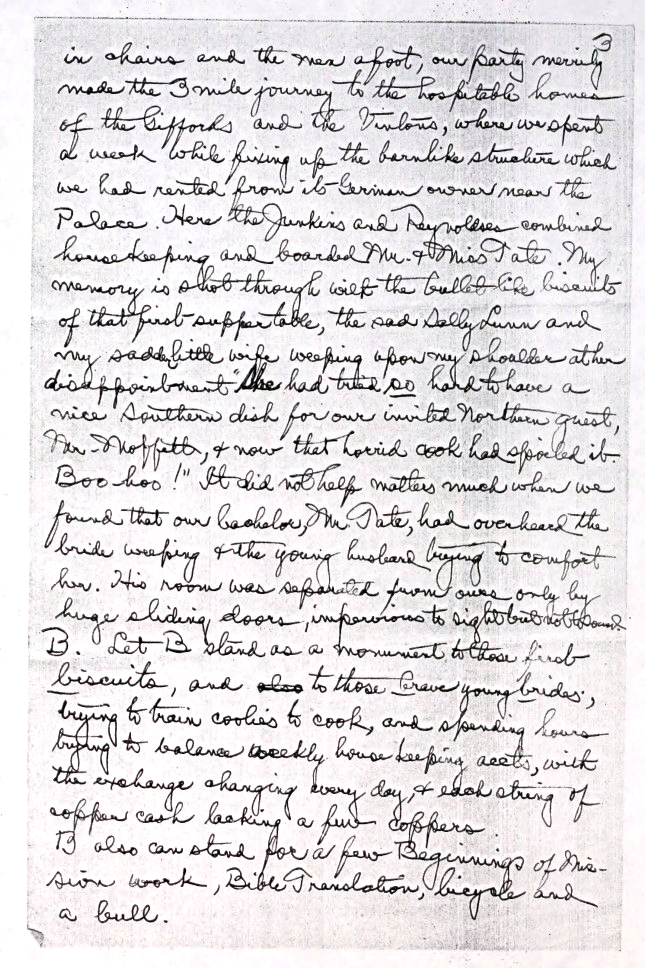 3
in chairs and the men afoot, our party merrily
made the 3 mile journey to the hospitable homes
of the Giffords and the Vintons, where we spent
a week while fixing up the barnlike structure which
we had rented from its German owner near the
Palace. Here the Junkins and Reynoldses combined
housekeeping and boarded Mr. & Miss Tate. My
memory is shot through with the bullet-like biscuits
of that first supper table, the sad Sally Lunn and
my sadder little wife weeping upon my shoulder at her
disappointment "She had tried so hard to have a
nice Southern dish for our invited Northern guest,
Mr. Moffett, & now that horrid cook had spoiled it.
Boo-hoo!" It did not help matters much when we
found that our bachelor, Mr. Tate, had overheard the
bride weeping & the young husband trying to comfort
her. His room was separated from ours only by
huge sliding doors, impervious to sight but not to sound.
B. Let B stand as a monument to those first
biscuits, and also to those brave young brides,
trying to train coolies to cook, and spending hours
trying to balance weekly house keeping accts, with
the exchange changing every day, & each string of
copper cash lacking a few coppers.
B also can stand for a few Beginnings of Mis-
sion work, Bible Translation, bicycle and
a bull.